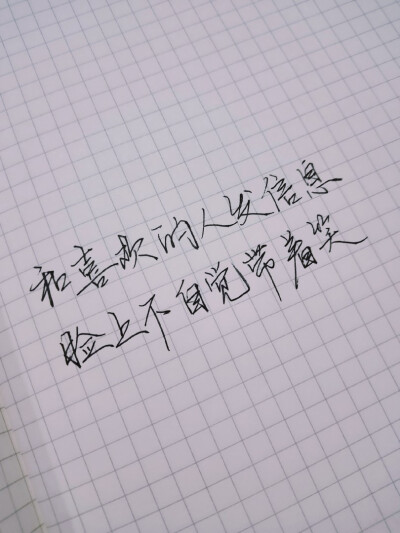 和喜欢的人发信息
脸上不自觉带着笑